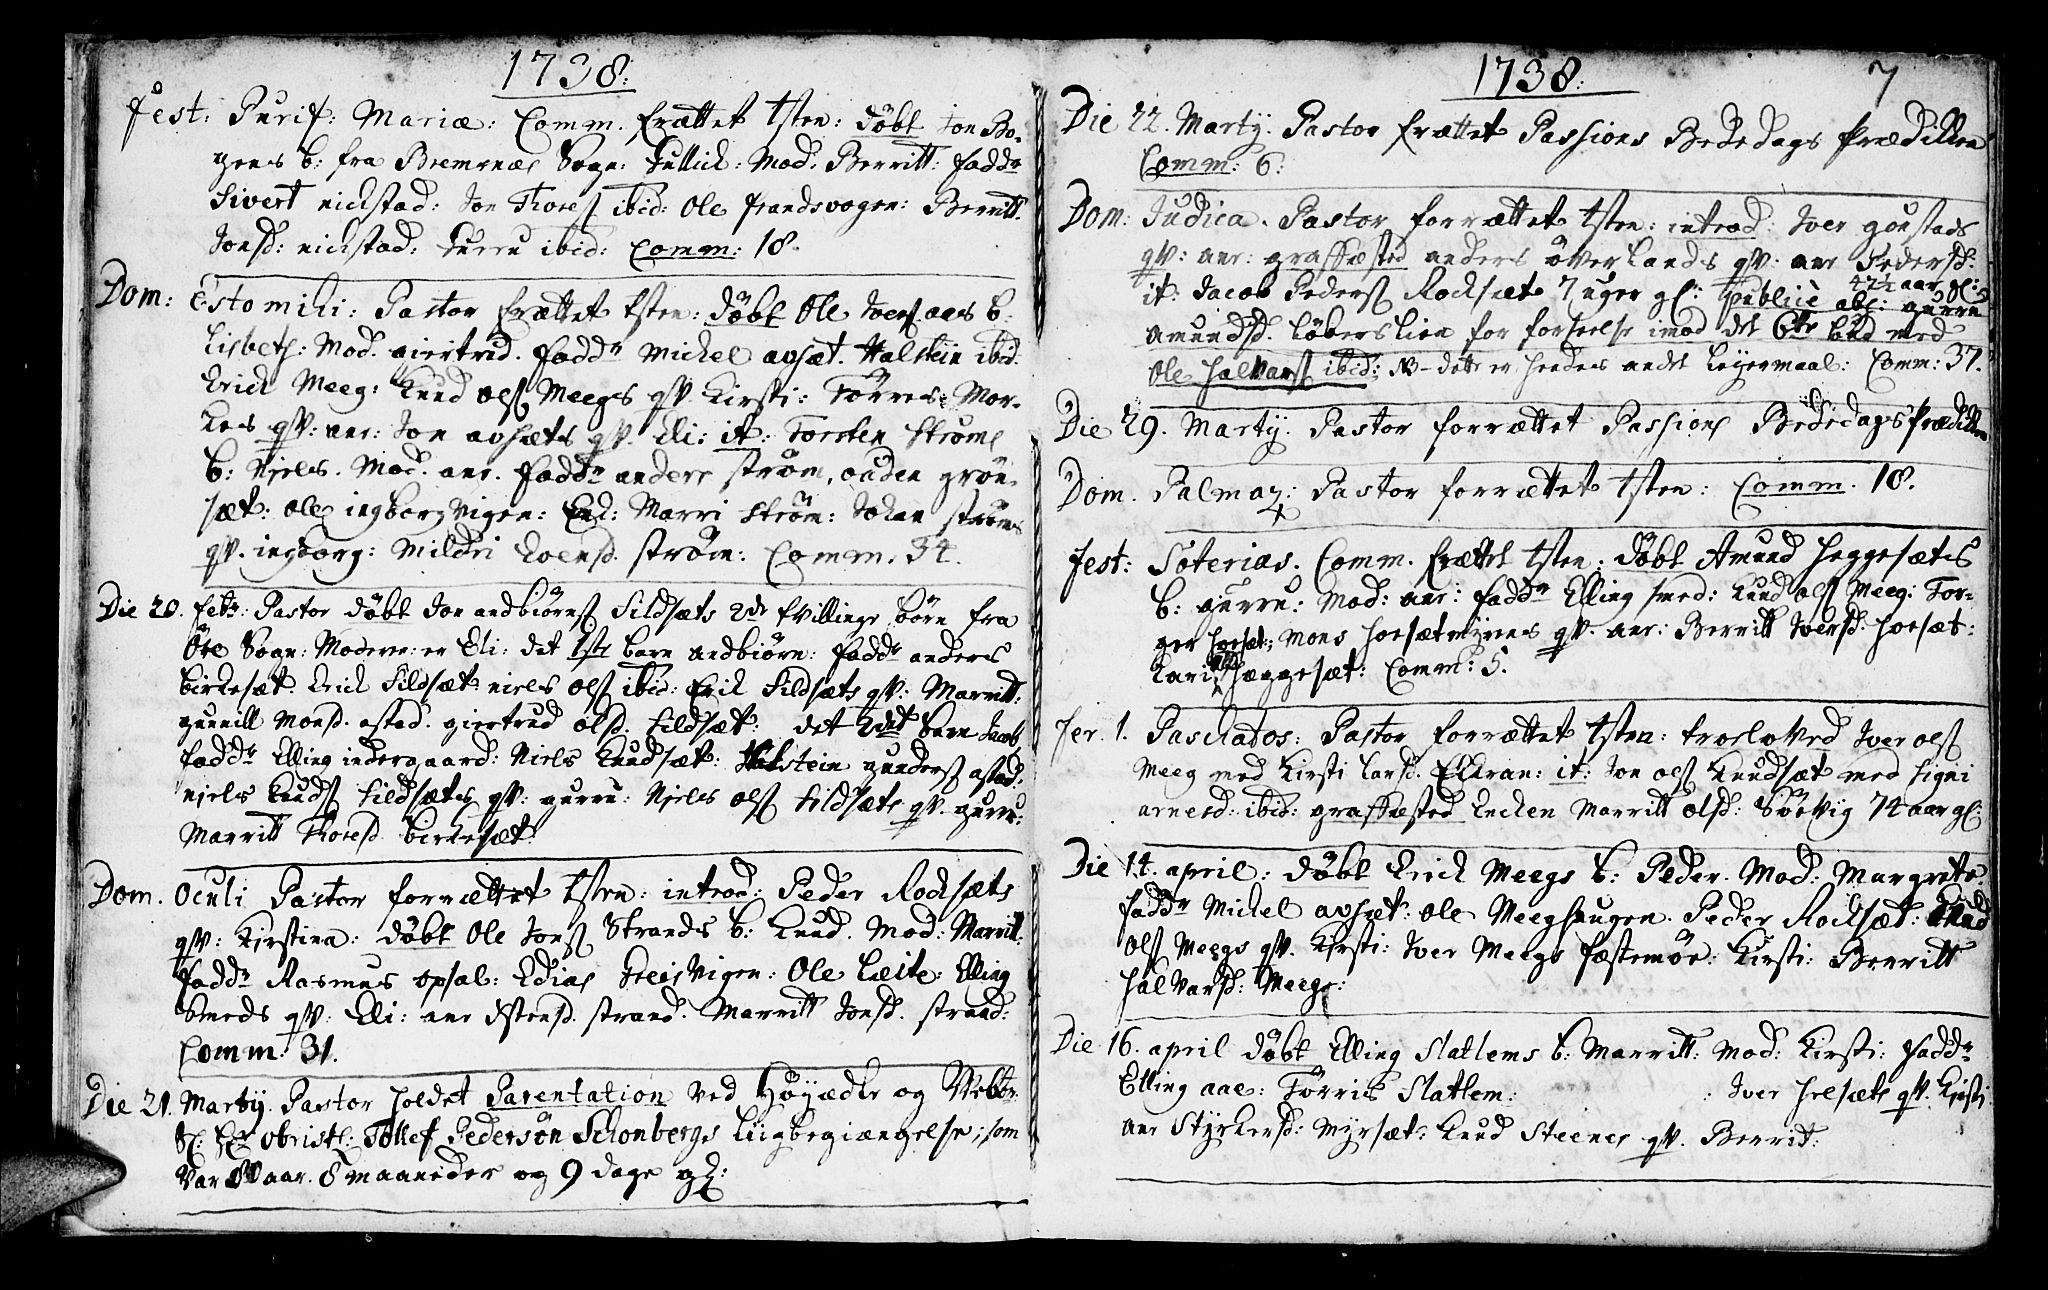 1738:
Fest: Purif: Mariæ: Comm. frættet tsten: døbt Jon Bo-
gens b: fra Bremsnæs Sogn: Mod. Berritt: fadd:
Sivert nickstad: Jon Thores ibid: Ole frandsvogen: Berritt
Jonsd: nickstad: Gurru ibid: Comm: 18.
Dom: Estomihi: Pastor frættet tsten: døbt Ole Ivers aas b:
Lisbeth: Mod. giertrud. fadd: Michel avsæt. Halstein ibid:
Erich Meeg: Knud Ols Meegs qv: Kirsti: Tørres Mor-
kes qv: anr: Jon avsæts qv. Eli: it: Torsten Strøms
b: Njels. Mod. anr. fadd: anders strøm, auden grøn-
sæt: Ole ingborgvigen: Enk: Marri strøm: Johan strøms
qv. ingborg: Mildri strøm: Comm. 34.
Die 20. febr: Pastor døbt Jon andbiørns Sildsæts 2de tvillinge børn fra
Øre Sogn: Moderen er Eli: det 1ste barn andbiørn: fadd: anders
birkesæt. Erich Sildsæt niels ols ibid: Erik Sildsæts qv: Marritt:
gunnill Monsd. astad. giertrud olsd. Sildsæt: det 2det barn Jacob
fadd: Elling indergaard: Niels Knudsæt: Halstein gunders astad:
Niels Knuds Sildsætes qv: gurru: Njels ols Sildsæts qv. gurru:
Marritt Thoresd. birkesæt.
Dom. Oculi Pastor forrættet tsten: introd: Peder Rocksæts
qv: Kirstina: døbt Ole Jons Strands b: Knud. Mod: Marritt:
fadd: Rasmus opsal: Edias Ole Leite: Elling
Smeds qv: Eli: anr Østensd. strand. Marritt Jonsd. strand:
Comm: 31.
Die 21. Martij. Pastor holdet Parentation ved Høyædle og Velbr.
Sl: Hr Obristl: Tollef Pedersøn Schonbergs Liigbegiængelse; som
var aar. 8 maaneder og 9 dage gl:
1738: 7
Die 22. Martij. Pastor frættet Passions Bededags Prædicken
Comm: 6:
Dom: Judica. Pastor forrættet tsten: introd: Iver goustads
qv: anr: graffæsted anders øverlands qv: anr Pedersd:
it: Jacob Peders Rocksæt 7 uger gl: 42½ aar gl:
publice abs: gurru
amundsd. Løberslien for forseelse imod det 6te bud med
Ole Halvars ibid: NB dette er hendes andet Leyermaal: Comm: 37.
Die 29. Martij. Pastor forrættet Passions Bededags Prædicken
Dom. Palmar: Pastor forrættet tsten: Comm. 18.
Fest: Soterias. Comm. frættet tsten: døbt Amund Heggesætes
b: gurru: Mod: anr: fadd: Elling smed: Knud ols Meeg: Tor-
ger hoesæt: Mons hoesætmyrens qv. anr: Berritt Iversd. hoesæt:
Kari Heggesæt: Comm: 5.
Fer. 1. Paschatos: Pastor forrættet tsten: troeloved Iver ols
Meeg med Kirsti Larsd. Eickran: it: Jon ols Knudsæt med Signi
arnesd: ibid: graffæsted Encken Marritt olsd: Søevig 74 aar gl:
Die 14. april: døbt Erich Meegs b: Peder. Mod: Margrete
fadd: Michel avsæt: Ole Meeghaugen. Peder Rocksæt: Knud
Ols Meegs qv. Kirsti: Iver Meegs fæstemøe: Kirsti: Berritt
Halvarsd: Meeg:
Die 16. april døbt Elling Slatlems b: Marritt: Mod: Kirsti: fadd:
Elling aae: Tørris Slatlem: Iver hoesæts qv. Kirsti
anr Styrkersd: Myrsæt: Knud Steenes qv. Berrit: